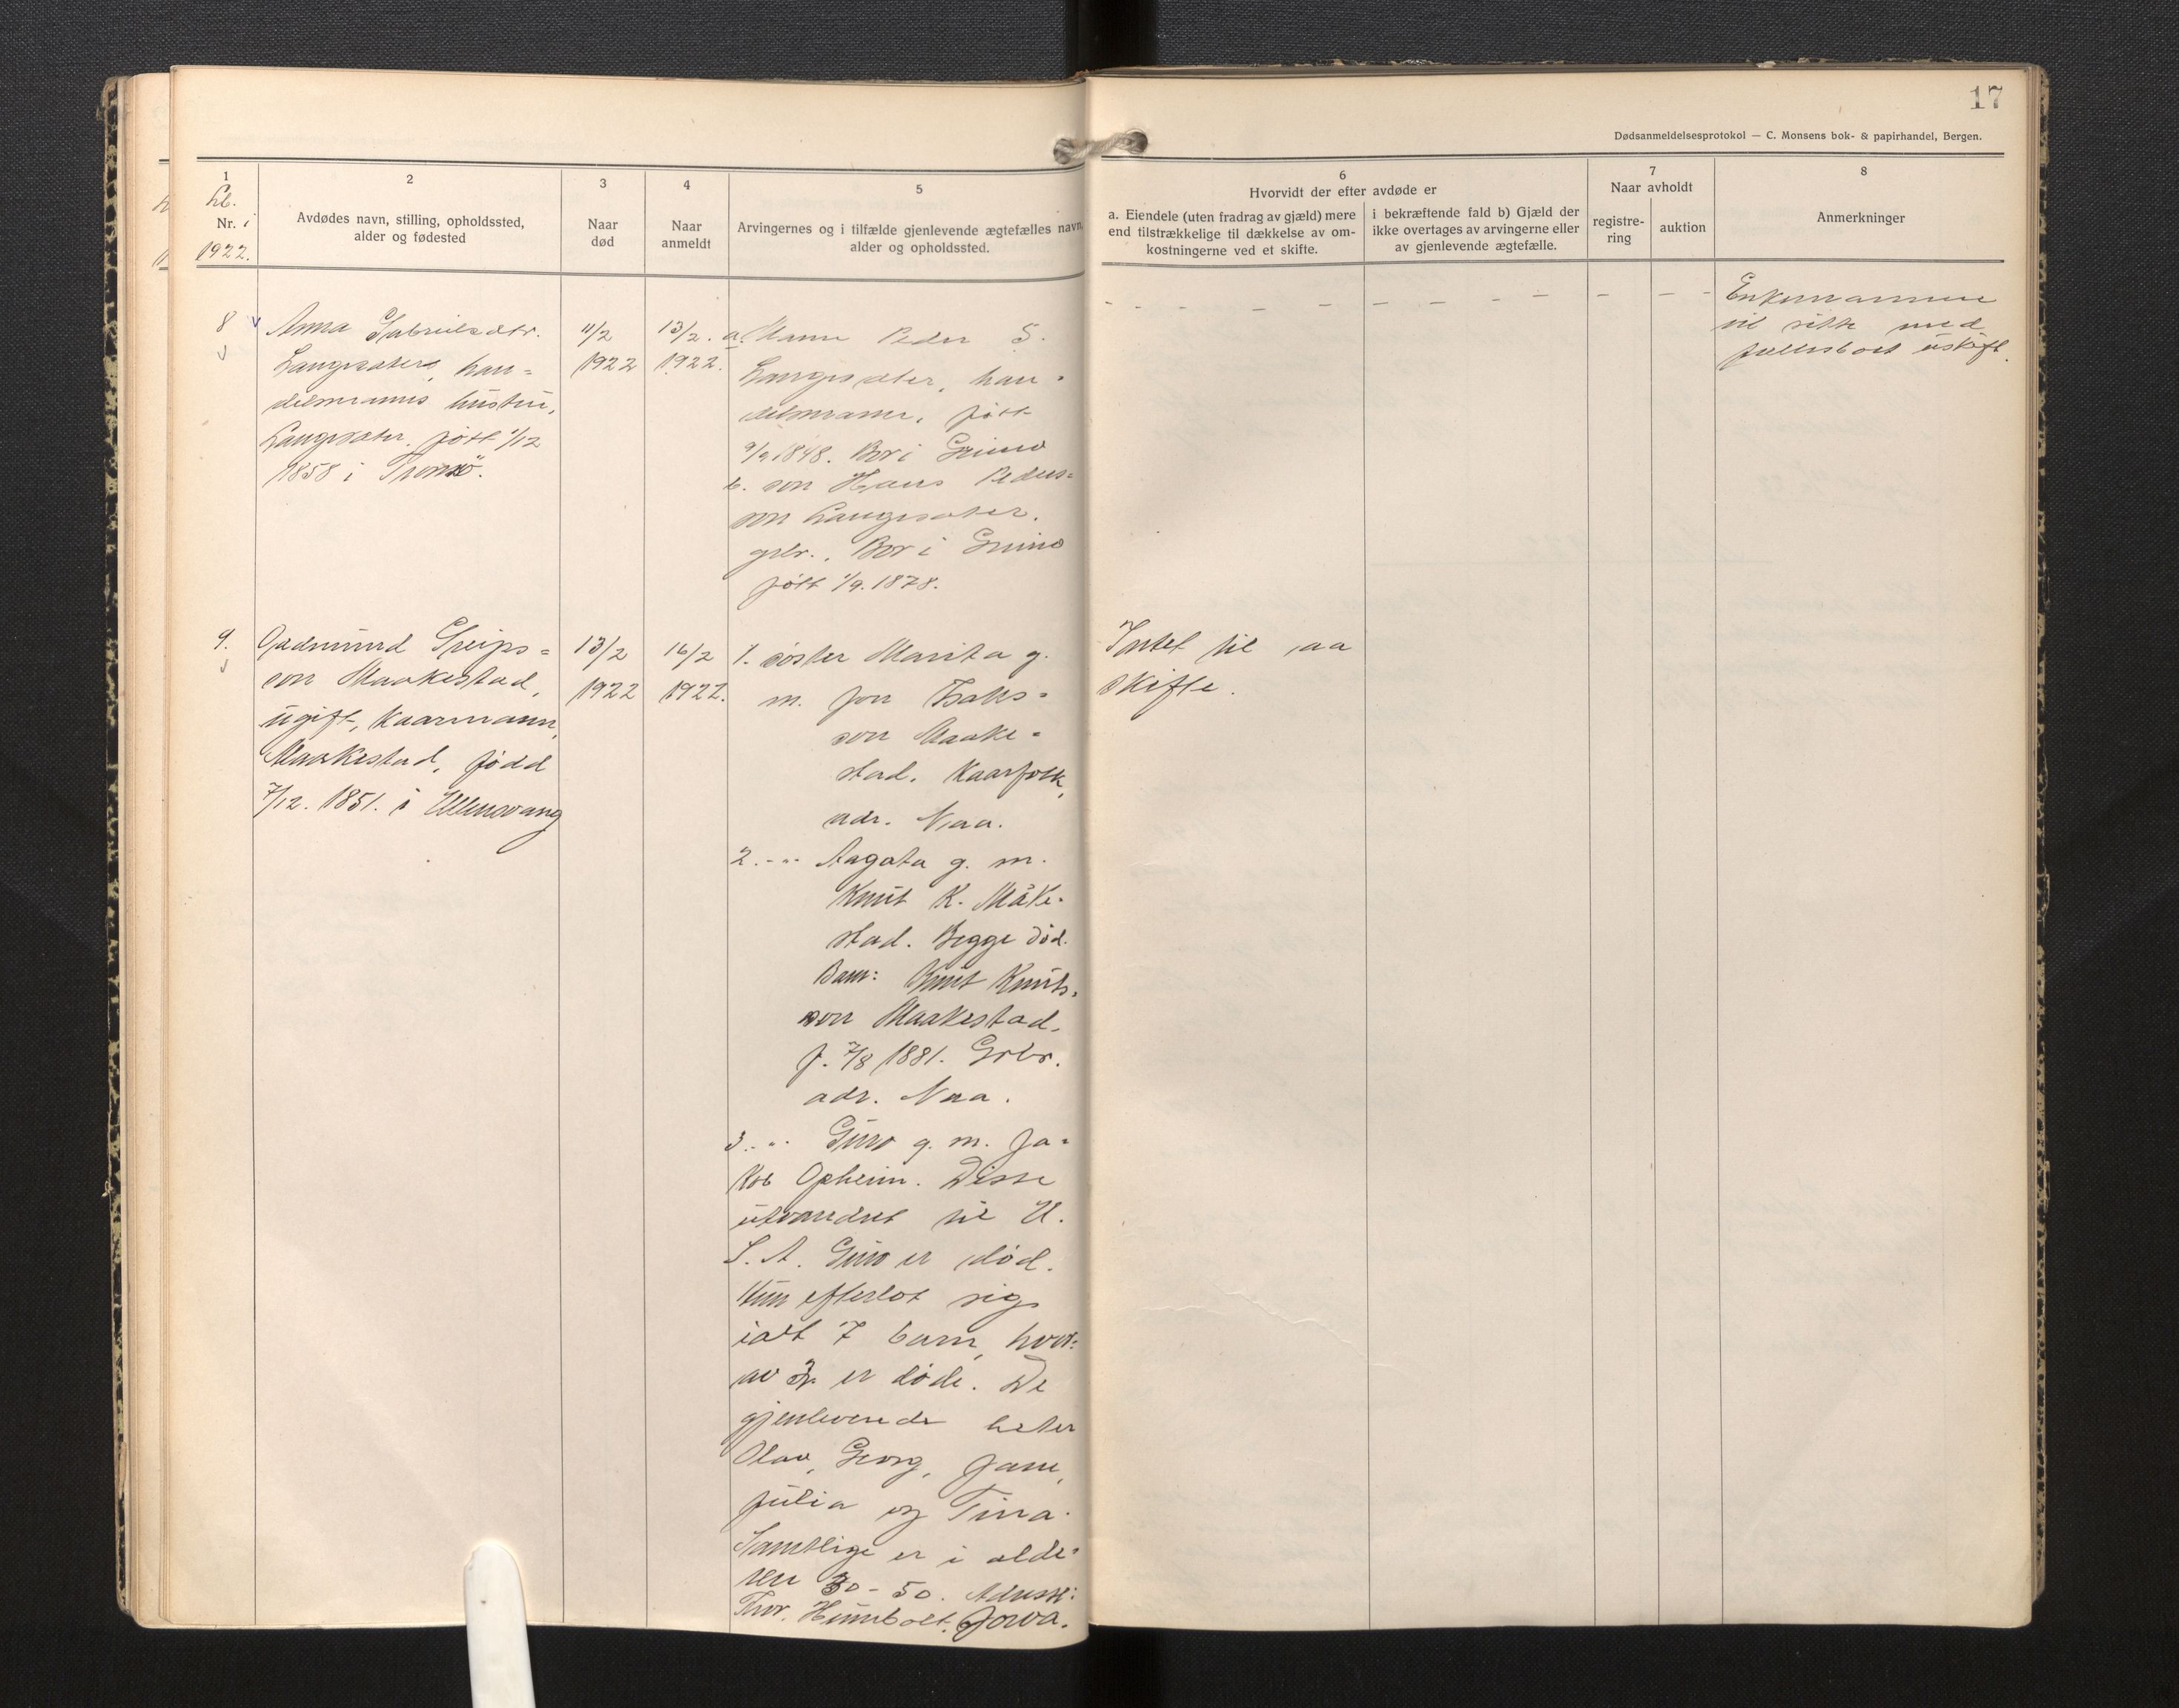 17
Dødsanmeldelsesprotokol — C. Monsens bok- & papirhandel, Bergen.
1
Lb.
Nr. i
1922.
2
Avdødes navn, stilling, opholdssted,
alder og fødested
3
Naar
død
4
Naar
anmeldt
5
Arvingernes og i tilfælde gjenlevende ægtefælles navn,
alder og opholdssted.
6
Hvorvidt der efter avdøde er
a. Eiendele (uten fradrag av gjæld) mere
end tilstrækkelige til dækkelse av om-
kostningerne ved et skifte.
i bekræftende fald b) Gjæld der
ikke overtages av arvingerne eller
av gjenlevende ægtefælle.
7
Naar avholdt
registre-
ring
auktion
8
Anmerkninger
8
Anna Gabrielsdtr.
Langesæter, han=
delsmanns hustru,
Langesæter. født 1/12
1858 i Tromsø.
11/2
1922
13/2.
1922.
a. Mann Peder S.
Langesæter, han-
delsmann, født
9/9 1848. Bor i Grimo
b. son Hans Peders=
son Langesæter.
grbr. Bor i Grimo
født 1/9. 1878.
- - - - - - - - - - - - - -
Enkemannen
vil sitte med
fellesboet uskift.
9.
Oddmund Sveins=
son Maakestad,
ugift, Kaarmann,
Maakestad, fødd
7/12. 1851. i Ullensvang
13/2
1922
16/2
1922.
1. søster Marita g.
m. Jon Isaks=
son Maake=
stad. Kaarfolk,
adr. Naa.
2. -"- Aagata g. m.
Knut K. Måke-
stad. Begge død.
Barn: Knut Knuts-
son Maakestad.
f. 7/8 1881. Grbr.
adr. Naa.
3. -"- Guro g. m. Ja=
kob Opheim. Disse
utvandret til U.
S. A. Guro er død.
Hun efterlot sig
ialt 7 barn, hvor=
av 2 er døde. De
gjenlevende heter
Olav, Georg, Jane,
Julia og Tina.
Samtlige er i alde=
ren 30 - 50. Adresse:
Thor. Humbolt. Jowa.
Intet til aa
skifte.